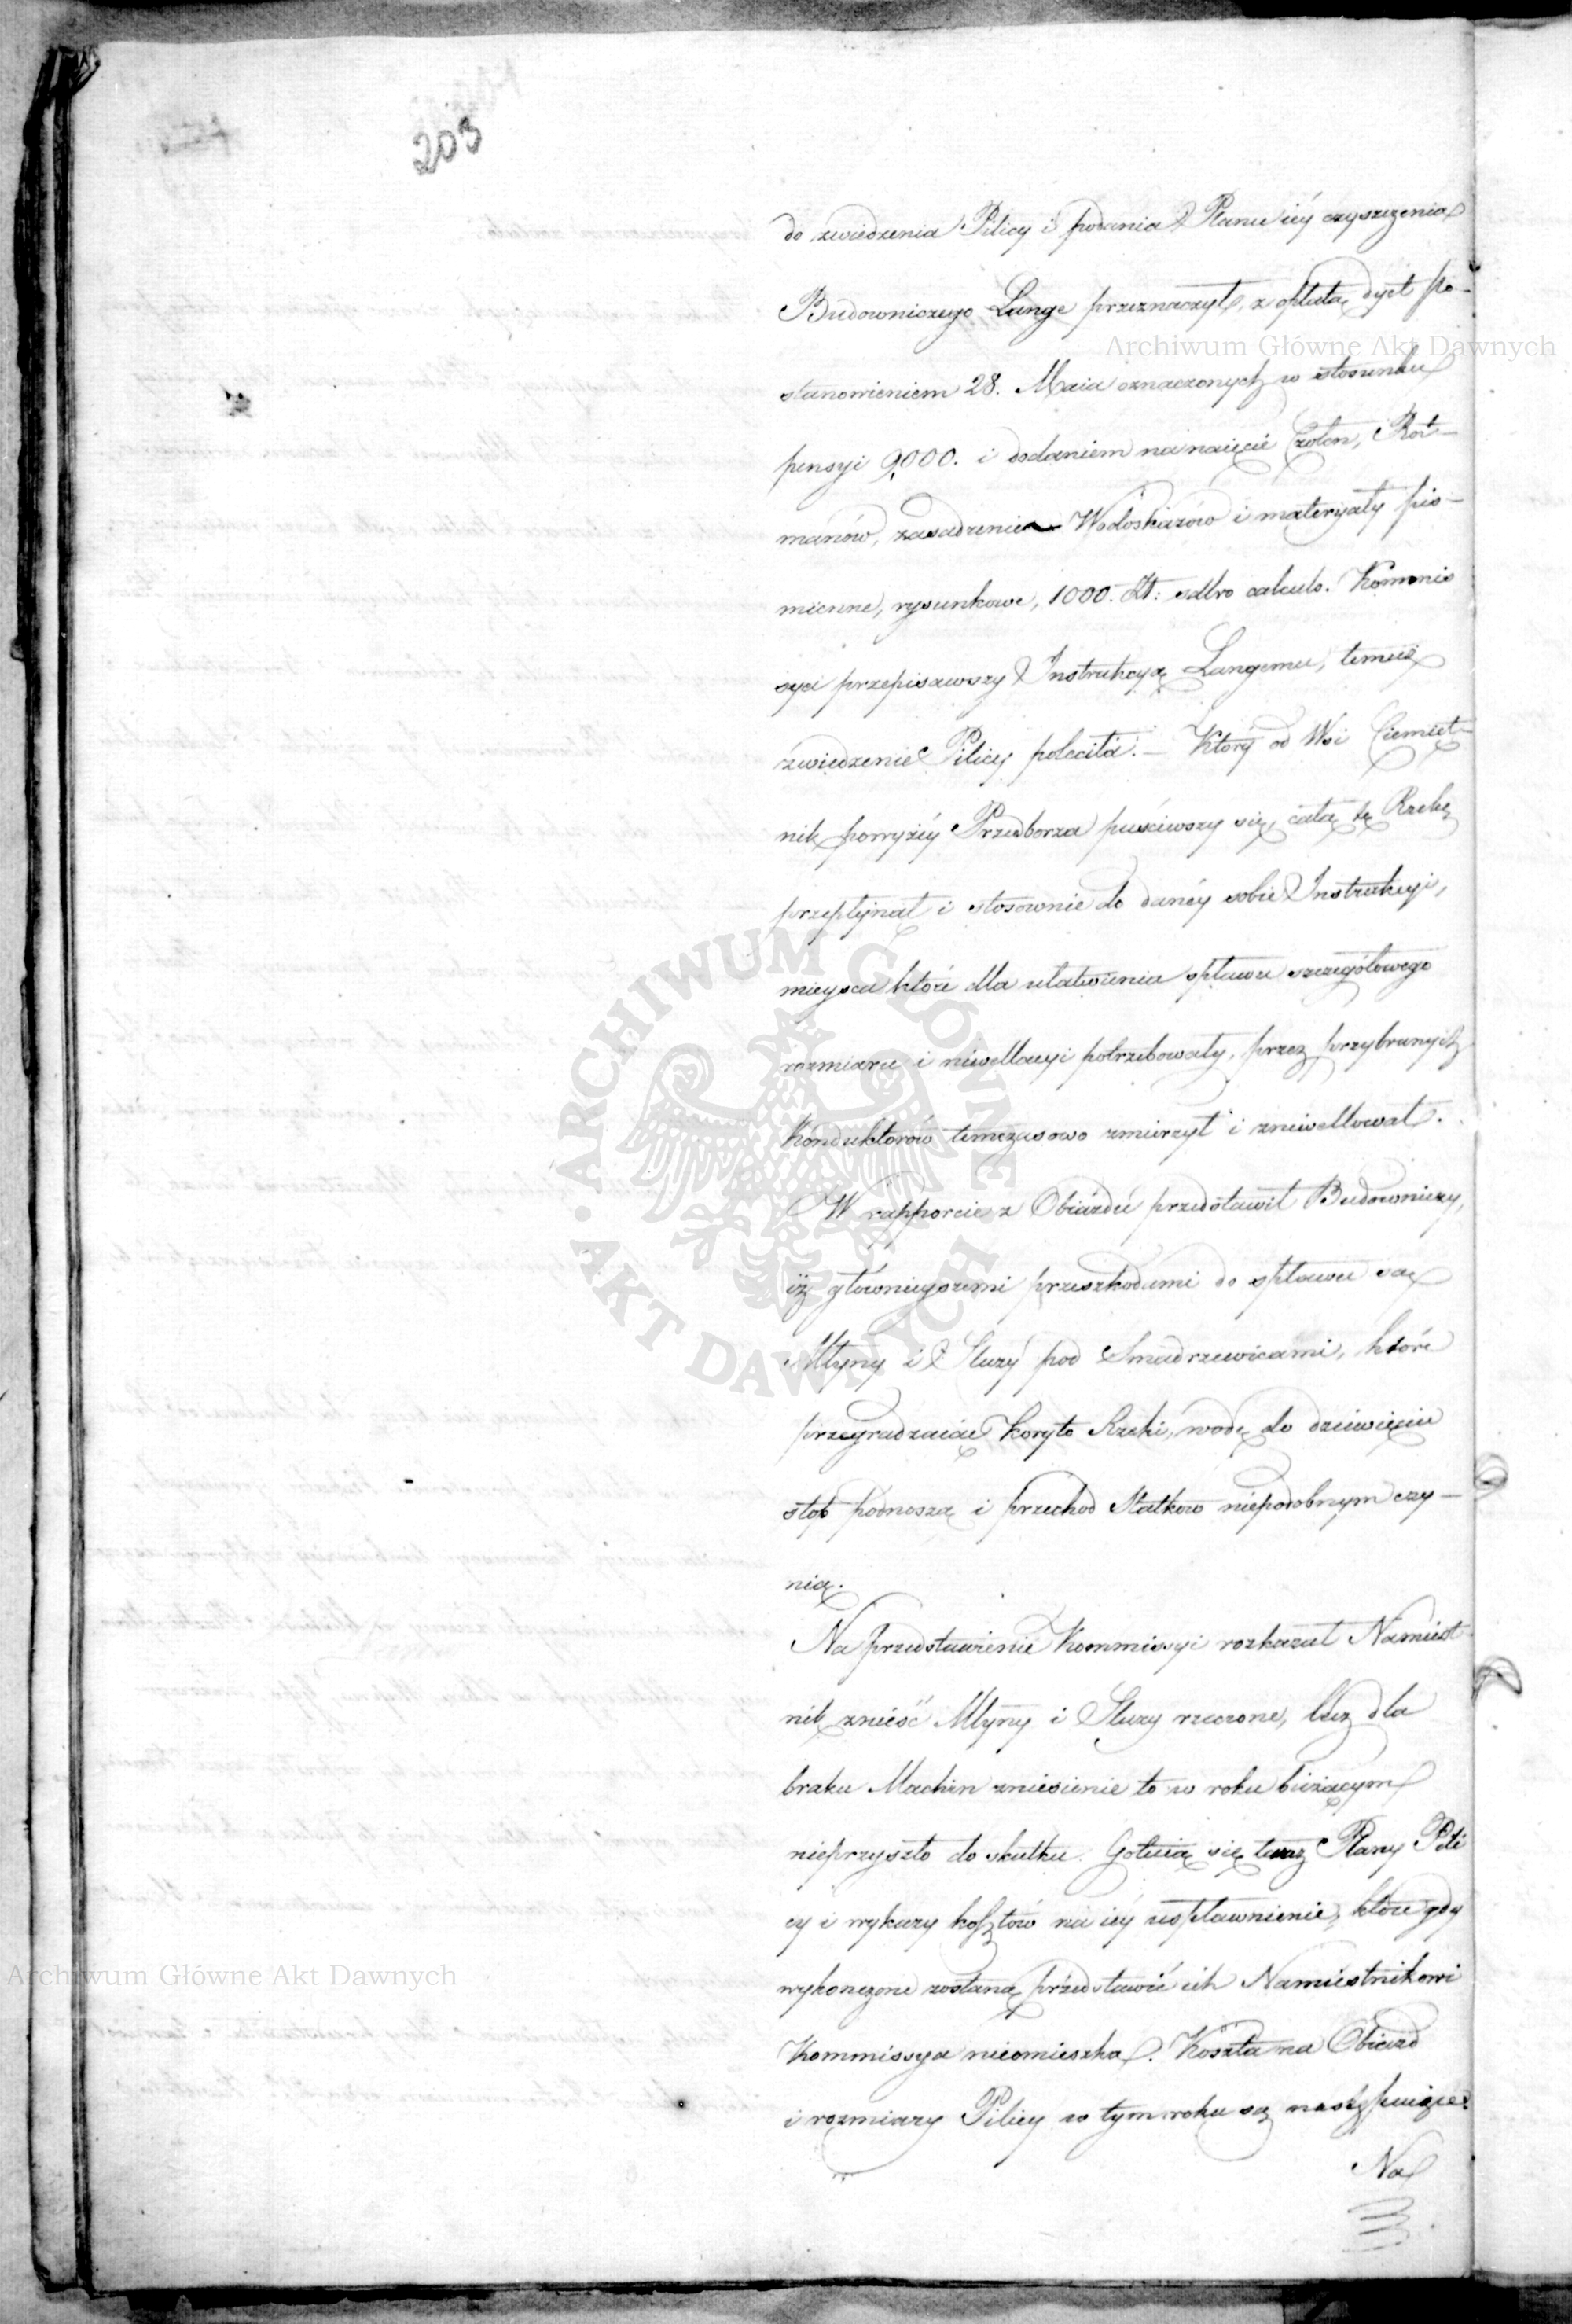 203
do zwiedzenia Pilicy i podania Planu iéy czyszczenia
Budowniczego Lange przeznaczył, z opłatą dyet po-
stanowieniem 28. Maia oznaczonych w stosunku
pensyi 9,000. i dodaniem na naięcie Czółen, Rot-
manów, zasadzenie Wodoskazów i materyały piś-
mienne, rysunkowe, 1000. Zł: salvo calculo. Kommis
sya przepisawszy Instrukcyą Langemu, temuż
zwiedzenie Pilicy poleciła. – Który od Wsi Ciemięt-
nik powyżéy Przedborza puściwszy się, całą tę Rzekę
przepłynął i stosownie do danéy sobie Instrukcyi,
mieysca które dla ułatwienia spławu szczegółowego
rozmiaru i niwellacyi potrzebowały, przez przybranych
Konduktorów temczasowo zmierzył i zniwellował.
W rapporcie z Obiazdu przedstawił Budowniczy,
iż główniejszemi przeszkodami do spławu są
Młyny i Sluzy pod Smardzewicami, które
przegradzaiąc koryto Rzeki, wodę do dziewięciu
stóp podnoszą i przechod Statków niepodobnym czy-
nią.
Na przedstawienie Kommissyi rozkazał Namiest
nik znieść Młyny i Sluzy rzeczone, lecz dla
braku Machin zniesienie to w roku bieżącym
nieprzyszło do skutku. Gotuią się teraz Plany Pili
cy i wykazy kosztów na iéy uspławnienie, które gdy
wykończone zostaną przedstawić ich Namiestnikowi
Kommissya nieomieszka. Koszta na Obiazd
i rozmiary Pilicy w tym roku są następuiące:
Na
Archiwum Główne Akt Dawnych
Archiwum Główne Akt Dawnych
ARCHIWUM GŁÓWNE AKT DAWNYCH